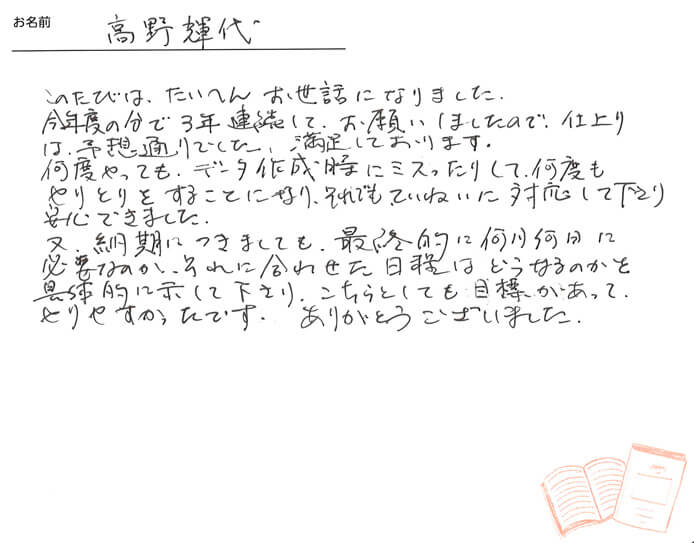 お名前 高野輝代
このたびは、たいへんお世話になりました。
今年度の分で3年連続して、お願いしましたので、仕上り
は、予想通りでした。満足しております。
何度やっても、データ作成時にミスったりして、何度も
やりとりをすることになり、それでもていねいに対応して下さり
安心できました。
又、納期につきましても、最終的に何月何日に
必要なのか、それに合わせた日程はどうなるのかを
具体的に示して下さり、こちらとしても目標があって、
とりやすかったです。 ありがとうございました。